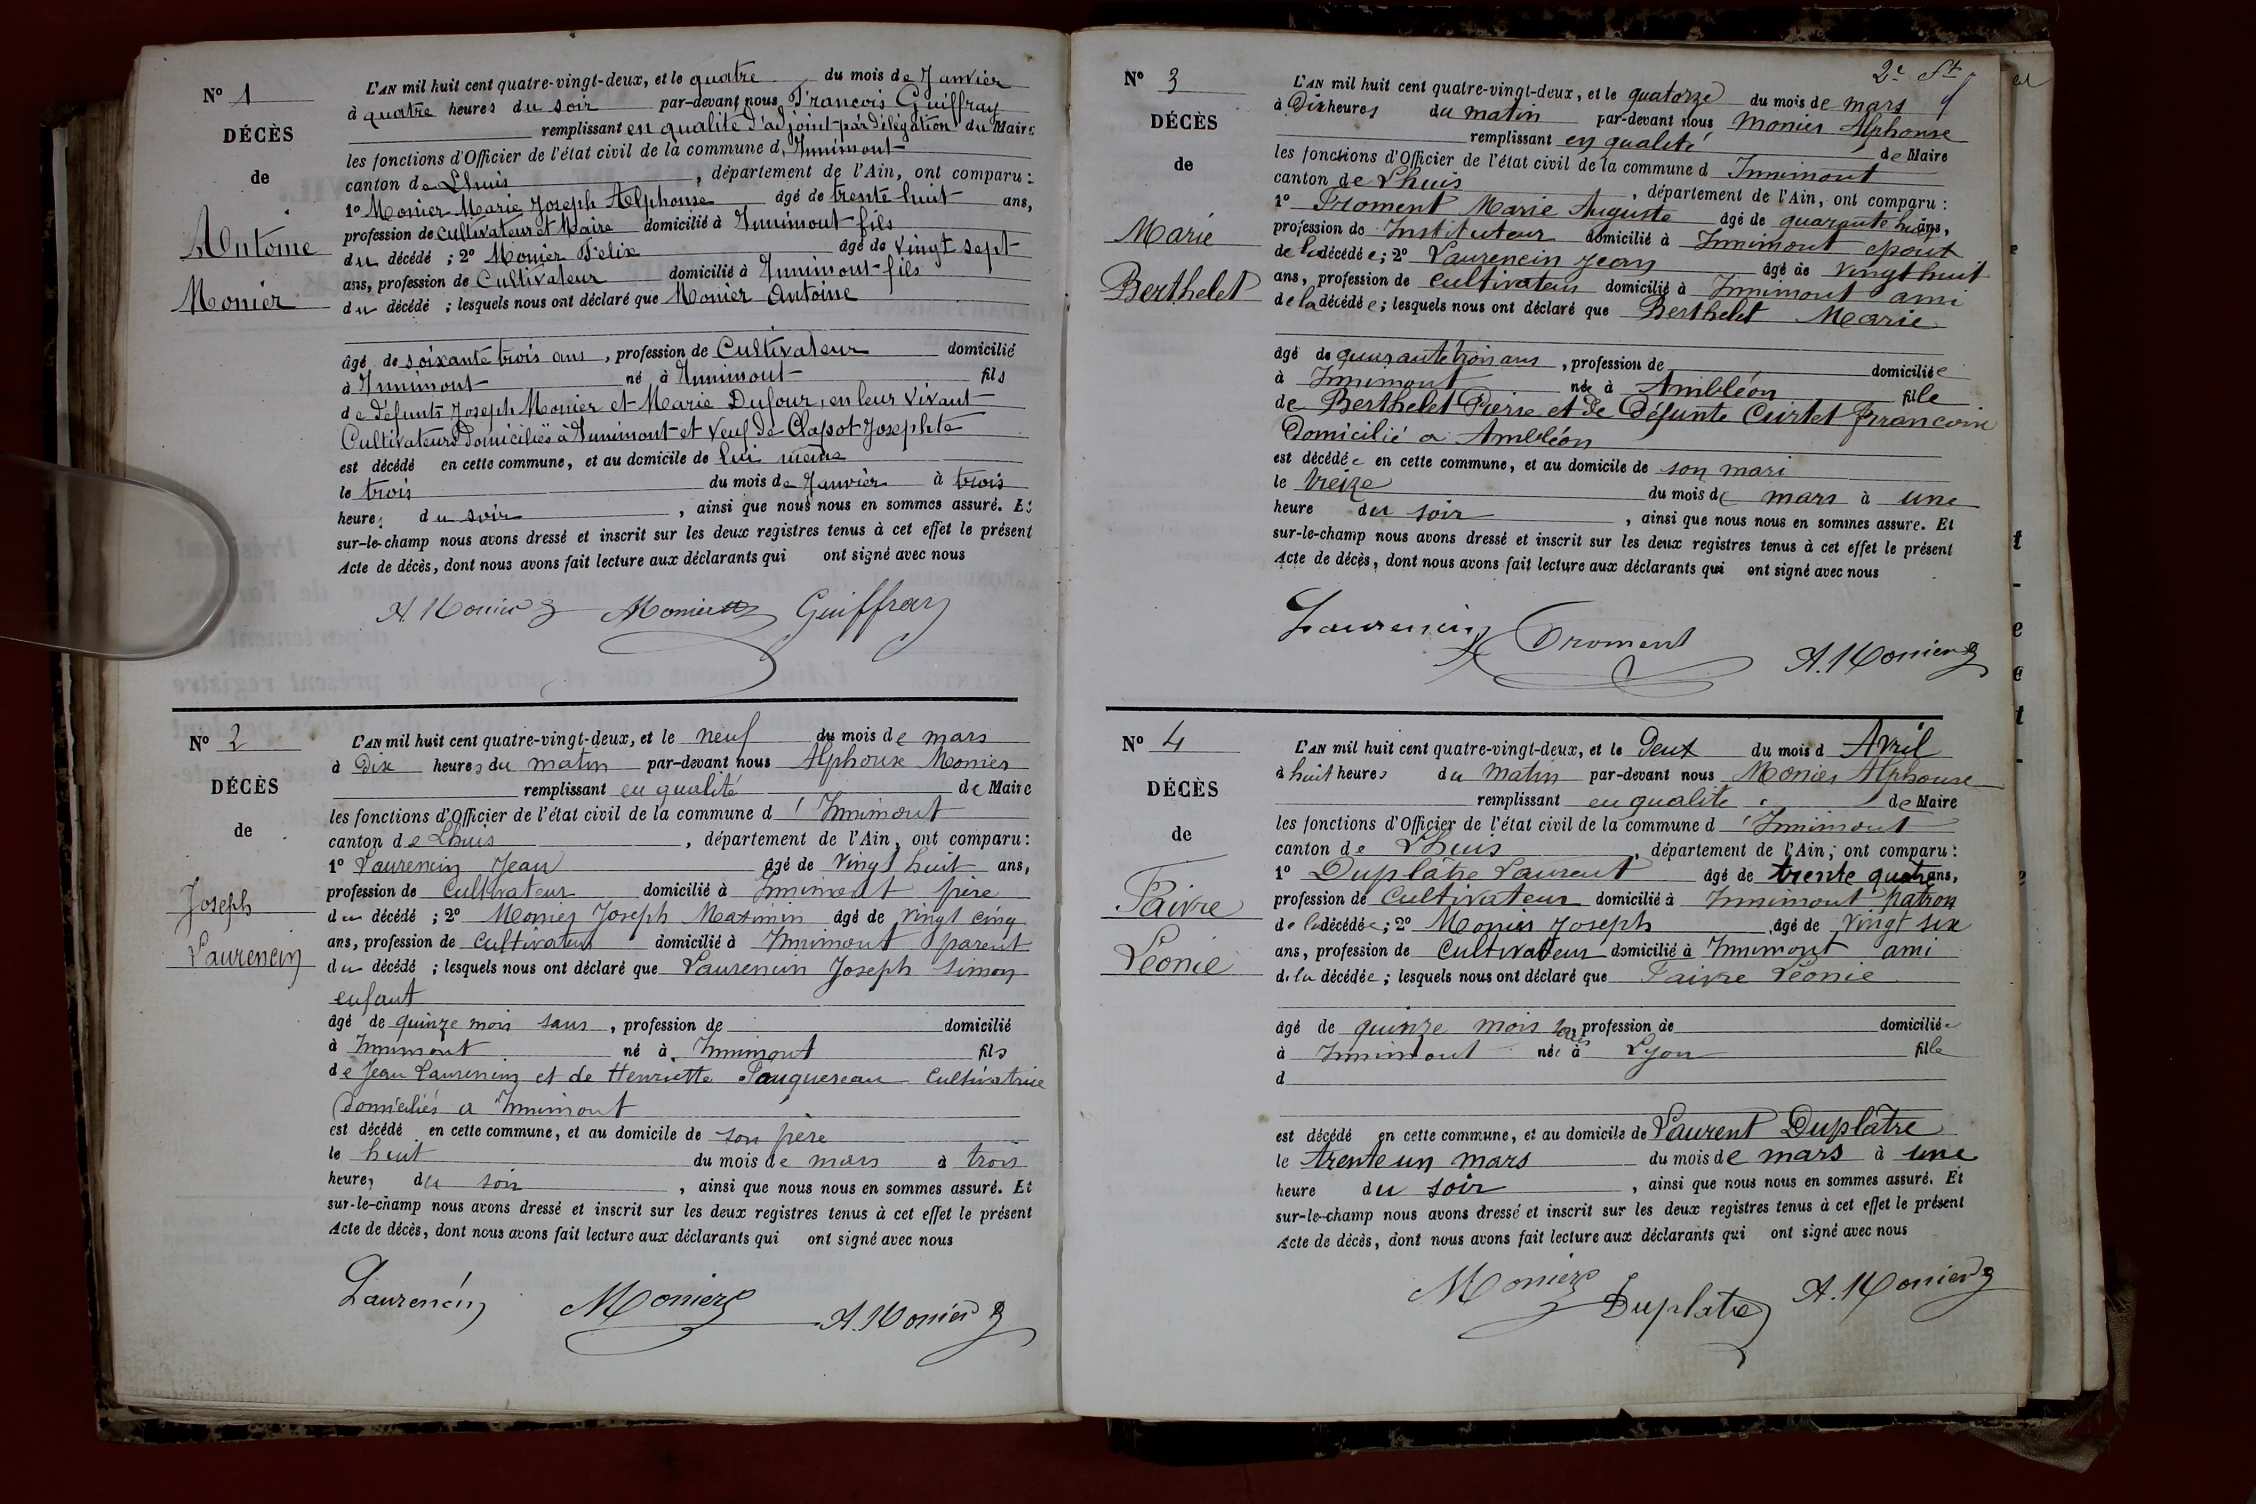 N° 1
DÉCÈS
de
Antoine
Monier
L'AN mil huit cent quatre-vingt-deux, et le quatre du mois de Janvier
à quatre heures du soir par-devant nous François Guiffray
remplissant en qualité d'adjoint par délégation du Maire
les fonctions d'Officier de l'état civil de la commune d'Innimont
canton de Lhuis, département de l'Ain, ont comparu :
1° Monier Marie Joseph Alphonse âgé de trente huit ans,
profession de cultivateur et Maire domicilié à Innimont fils
du décédé ; 2° Monier Félix âgé de vingt sept
ans, profession de Cultivateur domicilié à Innimont fils
du décédé ; lesquels nous ont déclaré que Monier Antoine
âgé de soixante trois ans, profession de Cultivateur domicilié
à Innimont né à Innimont fils
de défunts Joseph Monier et Marie Dufour, en leur vivant
Cultivateurs Domiciliés à Innimont et veuf de Clapot Josephte
est décédé en cette commune, et au domicile de lui même
le trois du mois de Janvier à trois
heures du soir, ainsi que nous nous en sommes assuré. Et
sur-le-champ nous avons dressé et inscrit sur les deux registres tenus à cet effet le présent
Acte de décès, dont nous avons fait lecture aux déclarants qui ont signé avec nous
A. Monier Monier Guiffray
N° 2
DÉCÈS
de
Joseph
Laurencin
L'AN mil huit cent quatre-vingt-deux, et le neuf du mois de mars
à Dix heures du matin par-devant nous Alphonse Monier
remplissant en qualité de Maire
les fonctions d'Officier de l'état civil de la commune d'Innimont
canton de Lhuis, département de l'Ain, ont comparu :
1° Laurencin Jean âgé de vingt huit ans,
profession de Cultivateur domicilié à Innimont père
du décédé ; 2° Monier Joseph Maximin âgé de vingt cinq
ans, profession de Cultivateur domicilié à Innimont parent
du décédé ; lesquels nous ont déclaré que Laurencin Joseph Simon
enfant
âgé de quinze mois sans, profession de domicilié
à Innimont né à Innimont fils
de Jean Laurencin et de Henriette Pauquereau Cultivatrice
Domiciliés a Innimont
est décédé en cette commune, et au domicile de son père
le huit du mois de mars à trois
heures du soir, ainsi que nous nous en sommes assuré. Et
sur-le-champ nous avons dressé et inscrit sur les deux registres tenus à cet effet le présent
Acte de décès, dont nous avons fait lecture aux déclarants qui ont signé avec nous
Laurencin Monier A. Monier
2e St
N° 3
DÉCÈS
de
Marie
Berthelet
L'AN mil huit cent quatre-vingt-deux, et le quatorze du mois de mars
à Dix heures du matin par-devant nous Monier Alphonse
remplissant en qualité de Maire
les fonctions d'Officier de l'état civil de la commune d Innimont
canton de Lhuis, département de l'Ain, ont comparu :
1° Froment Marie Auguste âgé de quarante huit ans,
profession de Instituteur domicilié à Innimont epoux
de la décédée ; 2° Laurencin Jean âgé de vingt huit
ans, profession de cultivateur domicilié à Innimont ami
de la décédée ; lesquels nous ont déclaré que Berthelet Marie
âgé de quarante trois ans, profession de domiciliée
à Innimont née à Ambléon fille
de Berthelet Pierre et de Défunte Curtet Francoise
Domicilié a Ambléon
est décédée en cette commune, et au domicile de son mari
le treize du mois de mars à une
heure du soir, ainsi que nous nous en sommes assuré. Et
sur-le-champ nous avons dressé et inscrit sur les deux registres tenus à cet effet le présent
Acte de décès, dont nous avons fait lecture aux déclarants qui ont signé avec nous
Laurencin Froment A. Monier
N° 4
DÉCÈS
de
Faivre
Léonie
L'AN mil huit cent quatre-vingt-deux, et le deux du mois d Avril
à huit heures du matin par-devant nous Monier Alphonse
remplissant en qualité de Maire
les fonctions d'Officier de l'état civil de la commune d'Innimont
canton de Lhuis, département de l'Ain, ont comparu :
1° Duplâtre Laurent âgé de trente quatre ans,
profession de Cultivateur domicilié à Innimont patron
de la décédée ; 2° Monier Joseph âgé de vingt six
ans, profession de Cultivateur domicilié à Innimont ami
de la décédée ; lesquels nous ont déclaré que Faivre Léonie
âgé de quinze mois sans profession de domiciliée
à Innimont née à Lyon fille
d
est décédé en cette commune, et au domicile de Laurent Duplâtre
le trente un mars du mois de mars à une
heure du soir, ainsi que nous nous en sommes assuré. Et
sur-le-champ nous avons dressé et inscrit sur les deux registres tenus à cet effet le présent
Acte de décès, dont nous avons fait lecture aux déclarants qui ont signé avec nous
Monier Duplatre A. Monier